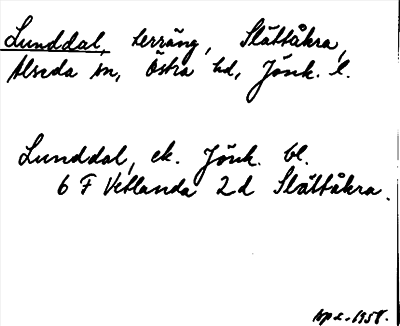 Lunddal, terräng, Slättåkra,
Alseda sn, Östra hd, Jönk. l.
Lunddal, ek. Jönk. bl.
6 F Vetlanda 2 d Slättåkra.
1958.